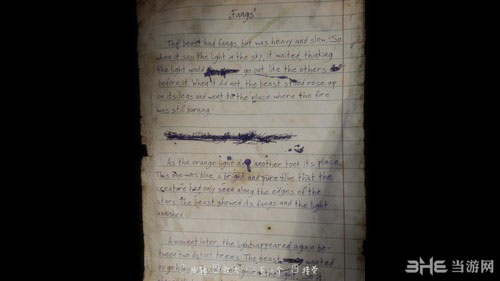 "Fangs"
The beast had fangs, but was heavy and slow. So
when it say the light in the sky, it waited, thinking
the light would go out like the others
before it. When it did not, the beast stood rose up
on its legs and went to the place where the fire
was still burning.
As the orange light another took its place.
This one was blue, a bright and pure blue that the
creature had only seen along the edges of the
stars. The beast showed its fangs and the light
vanished.
A moment later, the light appeared again be-
tween two distant trees. The beast wanted
to go the light
3HE 当游网
www.3HE.com